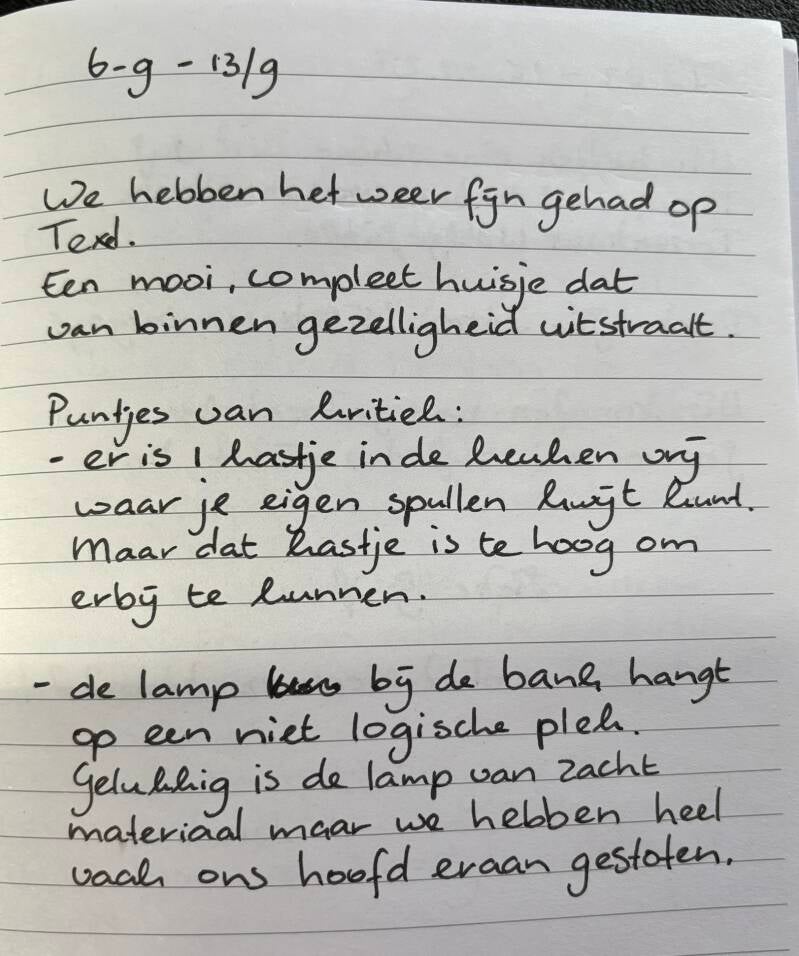 6-9 - 13/9
We hebben het weer fijn gehad op
Texel.
Een mooi, compleet huisje dat
van binnen gezelligheid uitstraalt.
Puntjes van kritiek:
- er is 1 kastje in de keuken vrij
waar je eigen spullen kwijt kunt.
Maar dat kastje is te hoog om
erbij te kunnen.
- de lamp bij de bank hangt
op een niet logische plek.
Gelukkig is de lamp van zacht
materiaal maar we hebben heel
vaak ons hoofd eraan gestoten.